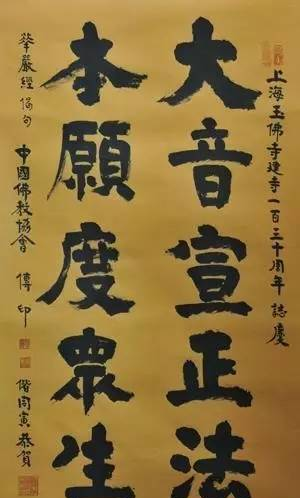 上海玉佛寺建寺一百三十周年 誌慶
大音宣正法
本願度眾生
華嚴經偈句 中國佛教協會 傳印
偕同寅恭賀